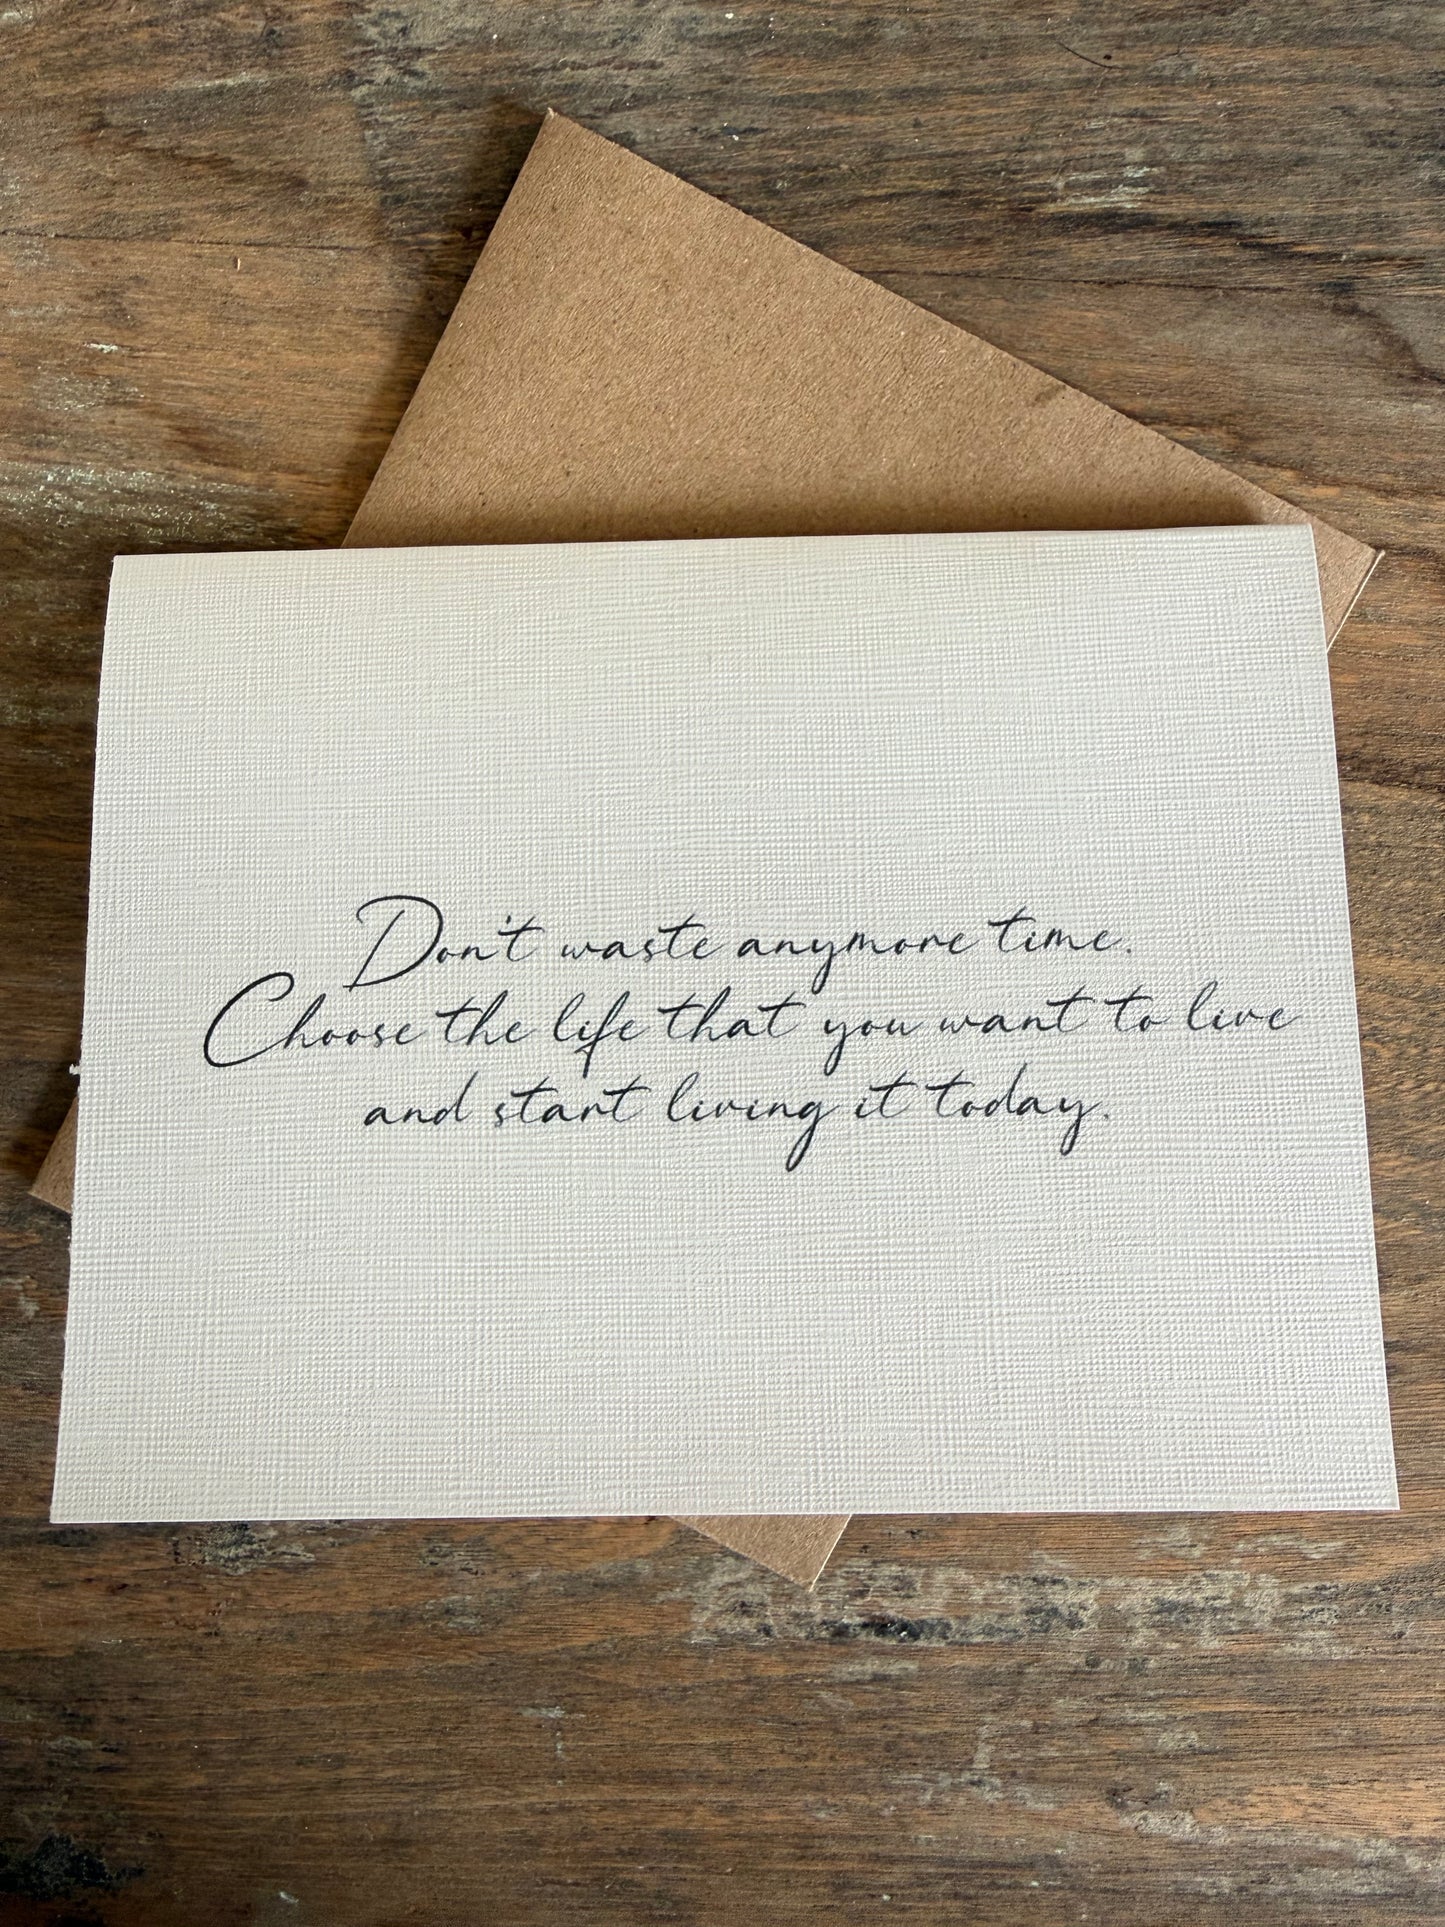 Don't waste anymore time.
Choose the life that you want to live
and start living it today.